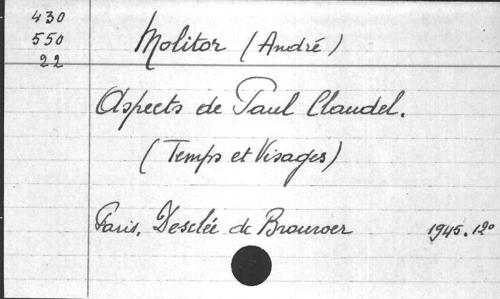 430
550
22
Molitor (André)
Aspects de Paul Claudel.
(Temps et Visages)
Paris, Desclée de Brouwer 1945. 12°